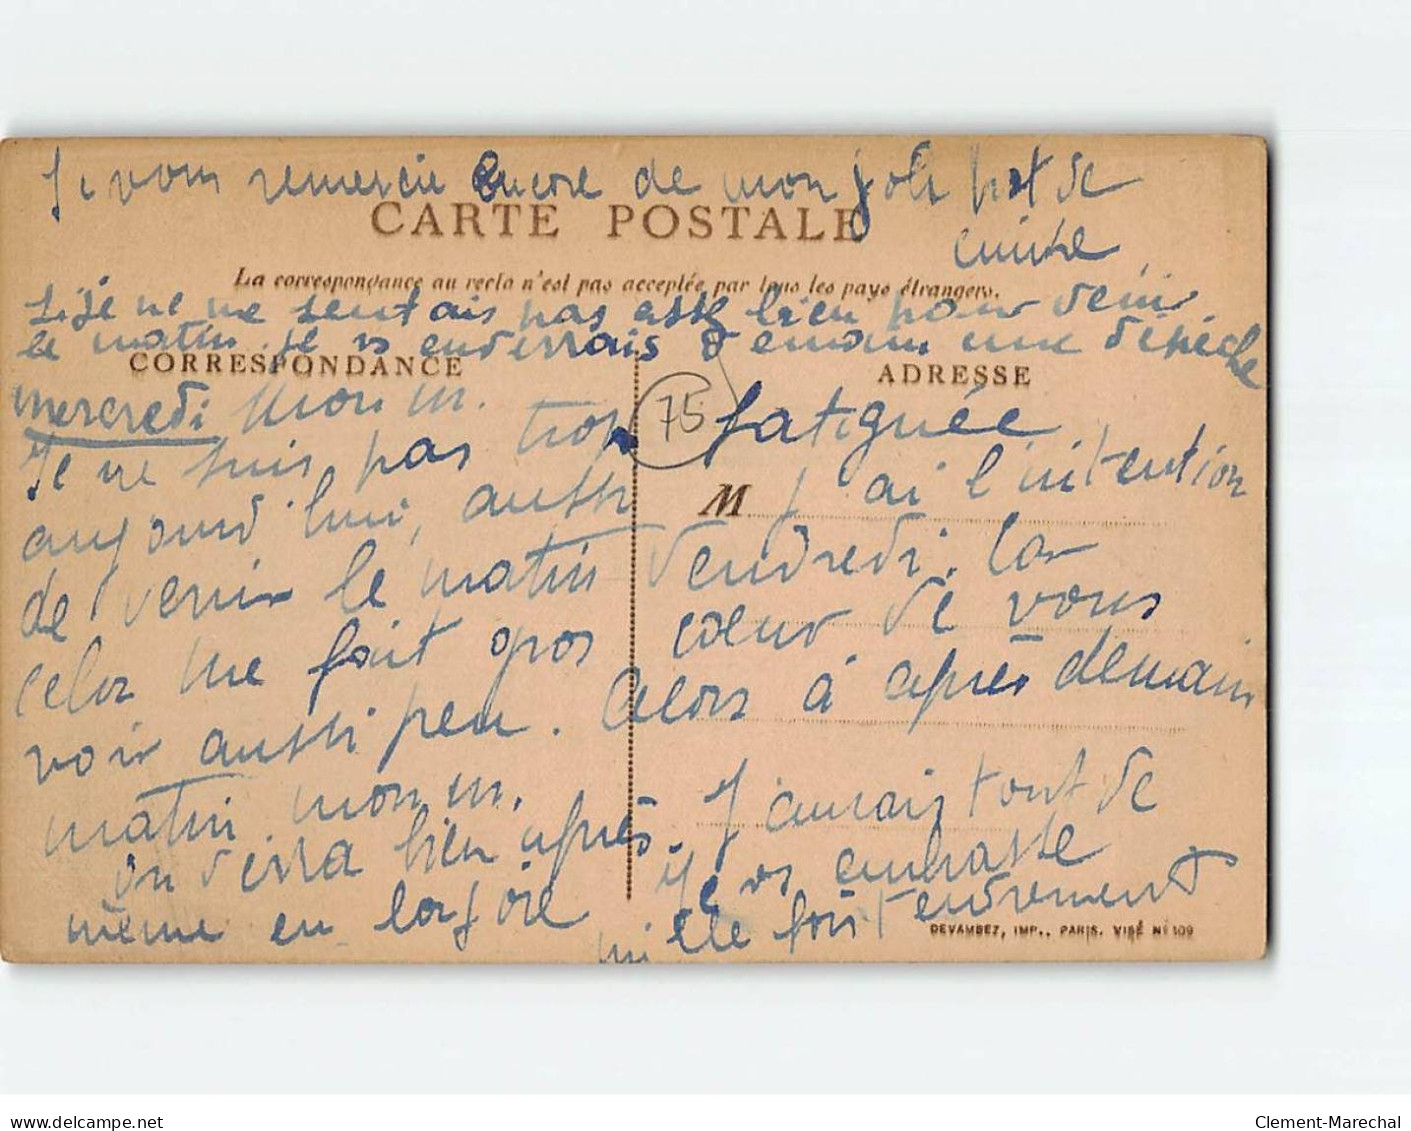 Je vous remercie encore de mon joli pot de
cuivre
CARTE POSTALE
La correspondance au recto n'est pas acceptée par tous les pays étrangers.
Si je ne me sentais pas assez bien pour venir
le matin je vs enverrais demain une dépêche
CORRESPONDANCE
ADRESSE
mercredi mon m.
75
Je ne suis pas trop fatiguée
aujourd'hui, aussi j'ai l'intention
M
de venir le matin Vendredi. Car
cela me fait gros cœur de vous
voir aussi peu. Alors à après demain
matin mon m. J'aurais tout de
on verra bien après. Je vs embrasse
même en
mille fois tendrement
DEVAMBEZ, IMP., PARIS. VISÉ Nº 109
delcampe.net
Clement-Marechal